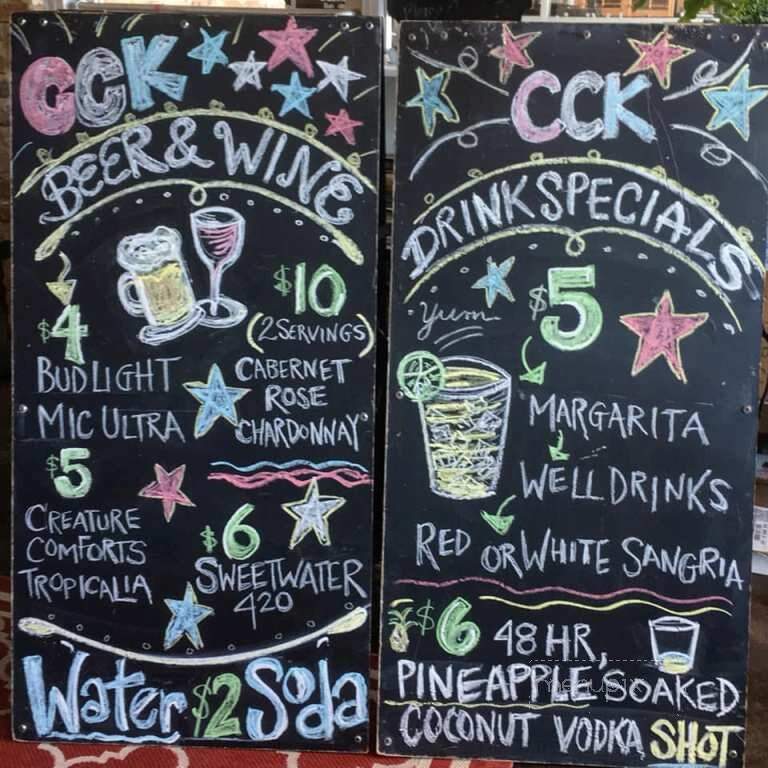 CCK
BEER & WINE
$4
BUD LIGHT
MIC ULTRA
$5
CREATURE
COMFORTS
TROPICALIA
$10
(2 SERVINGS)
CABERNET
ROSE
CHARDONNAY
$6
SWEETWATER
420
Water $2 Soda
CCK
DRINK SPECIALS
Yum
$5
MARGARITA
WELL DRINKS
RED OR WHITE SANGRIA
$6 48 HR,
PINEAPPLE SOAKED
COCONUT VODKA SHOT
menupix